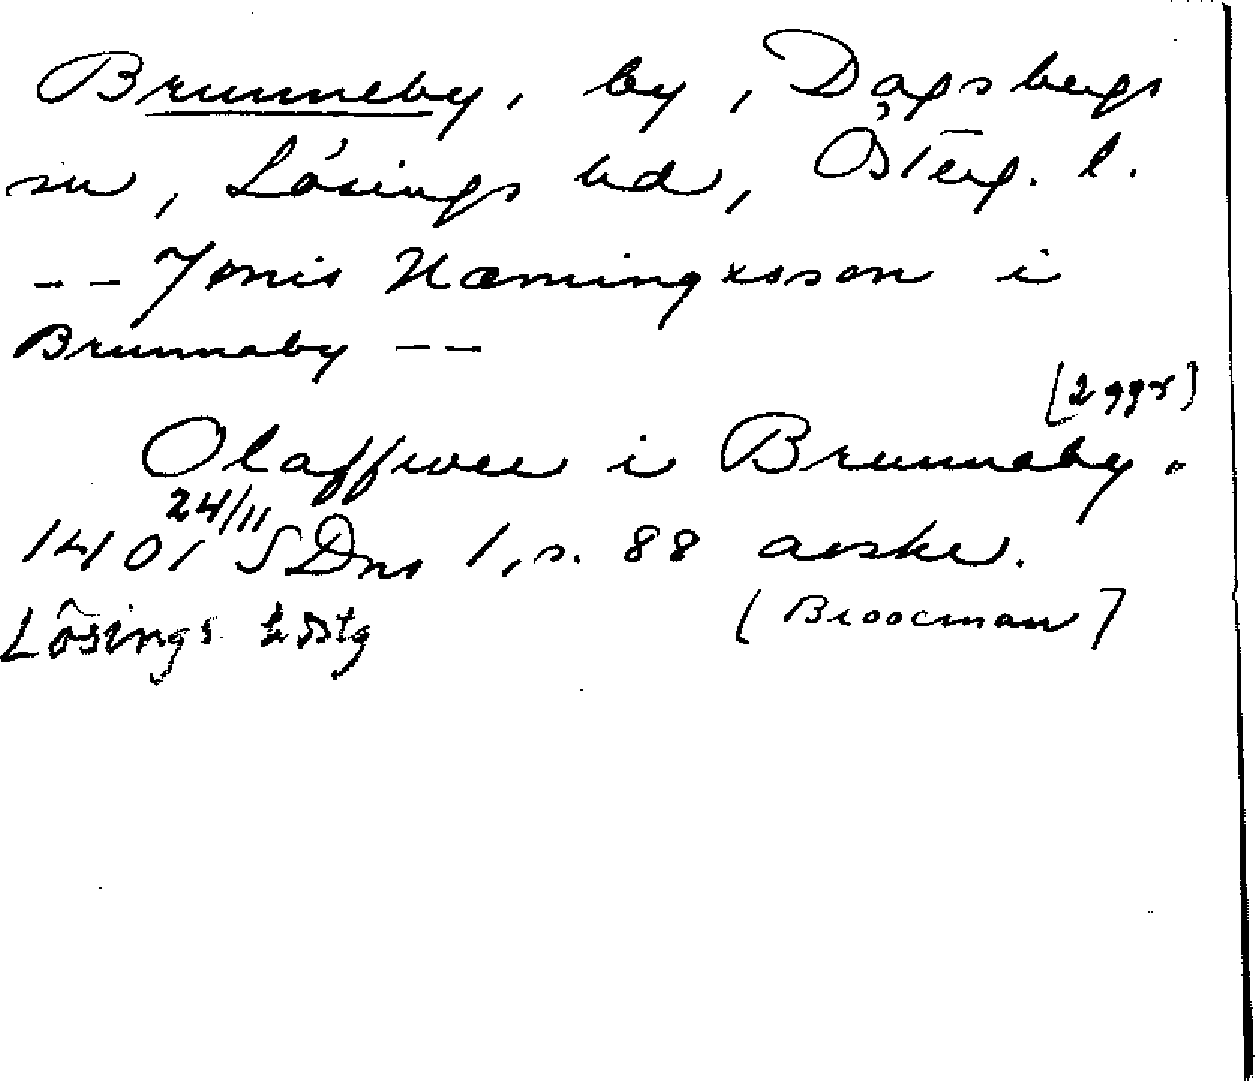 Brunneby, by, Dagsbergs
sn, Lösings hd, Österg. l.
-- Jønis Hæmingxsson i
Brunnaby --
[2 ggr]
Olaffwee i Brunnaby.
24/11
1401 SDns 1, s. 88 avskr.
Lösings htg
(Broocman]